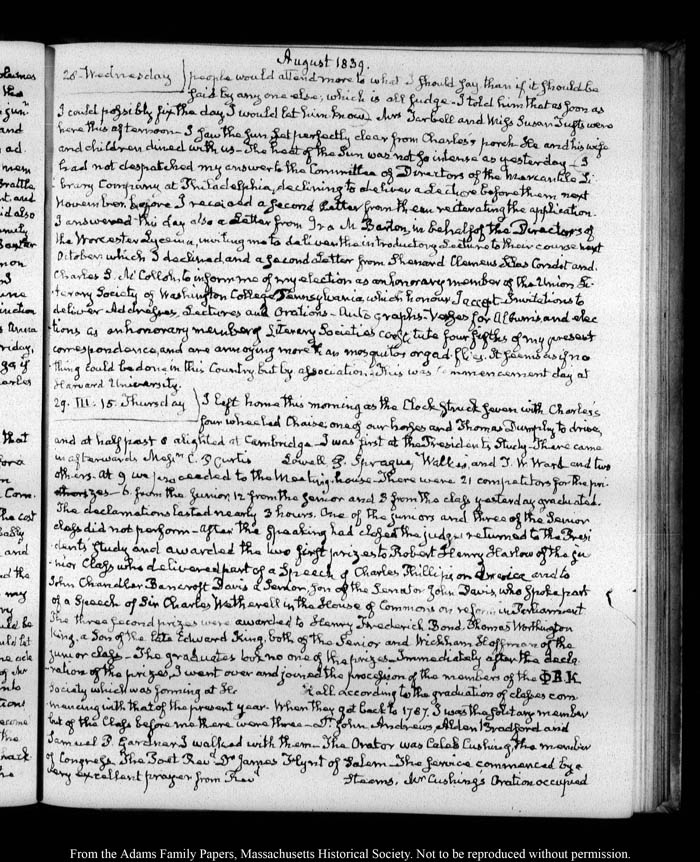 August 1839.
28. Wednesday people would attend more to what I should say than if it should be
said by any one else; which is all fudge. I told him that as soon as
I could possibly fix the day I would let him know. Mrs Tarbell and Miss Susan Tufts were
here this afternoon. I saw the Sun set perfectly clear from Charles's porch. He and his wife
and children dined with us. The heat of the Sun was not so intense as yesterday. I
had not despatched my answer to the Committee of Directors of the Mercantile Li-
brary Company at Philadelphia, declining to deliver a Lecture before them next
November, before I received a second Letter from them reiterating the application.
I answered this day also a Letter from Ira M Barton, in behalf of the Directors of
the Worcester Lyceum, inviting me to deliver the introductory Lecture to their course next
October which I declined, and a second Letter from Shenard Clemens, Silas Condit and
Charles S. McColloh, to inform me of my election as an honorary member of the Union Li-
terary Society of Washington College Pennsylvania, which honour I accept. Invitations to
deliver Addresses, Lectures and Orations. Autographs. Verses for Albums and elec-
tions as an honorary member of Literary Societies constitute four fifths of my present
correspondence, and are annoying more than mosquitos or gad-flies. It seems as if no
thing could be done in this Country but by association. This was Commencement day at
Harvard University.
29. III: 15. Thursday I left home this morning as the Clock struck seven with Charles's
four wheeled Chaise, one of our horses and Thomas Dunphy to drive,
and at half past 8 alighted at Cambridge. I was first at the Presidents Study. There came
in afterwards Messrs C. P Curtis Lowell P. Sprague, Walker, and T. W. Ward and two
others. At 9 we proceeded to the Meeting-house. There were 21 competitors for the pri-
zes. 6. from the Junior, 12 from the Senior and 3 from the class yesterday graduated.
The declamations lasted nearly 3 hours. One of the Juniors and three of the Senior
class did not perform. After the speaking had closed the judges returned to the Presi
dents' Study and awarded the two first prizes to Robert Henry Harlow of the Ju-
nior Class who delivered part of a Speech of Charles Phillips on America and to
John Chandler Bancroft Davis a Senior, son of the Senator John Davis, who spoke part
of a Speech of Sir Charles Wetherell in the House of Commons on reform in Parliament
The three second prizes were awarded to Henry Frederick Bond, Thomas Worthington
King, a Son of the late Edward King, both of the Senior and Wickham Hoffman of the
junior class. The graduates took no one of the prizes. Immediately after the decla-
ration of the prizes, I went over and joined the procession of the members of the ΦBK
Society which was forming at Ho all according to the graduation of classes com
mencing with that of the present year. When they got back to 1787. I was the solitary member
but of the Class before me there were three. Dr John Andrews, Alden Bradford and
Samuel P. Gardner I walked with them. The Orator was Caleb Cushing, the member
of Congress. The Poet Revd Dr James Flynt of Salem. The service commenced by a
very excellent prayer from Revd Stearns. Mr Cushing's Oration occupied
From the Adams Family Papers, Massachusetts Historical Society. Not to be reproduced without permission.